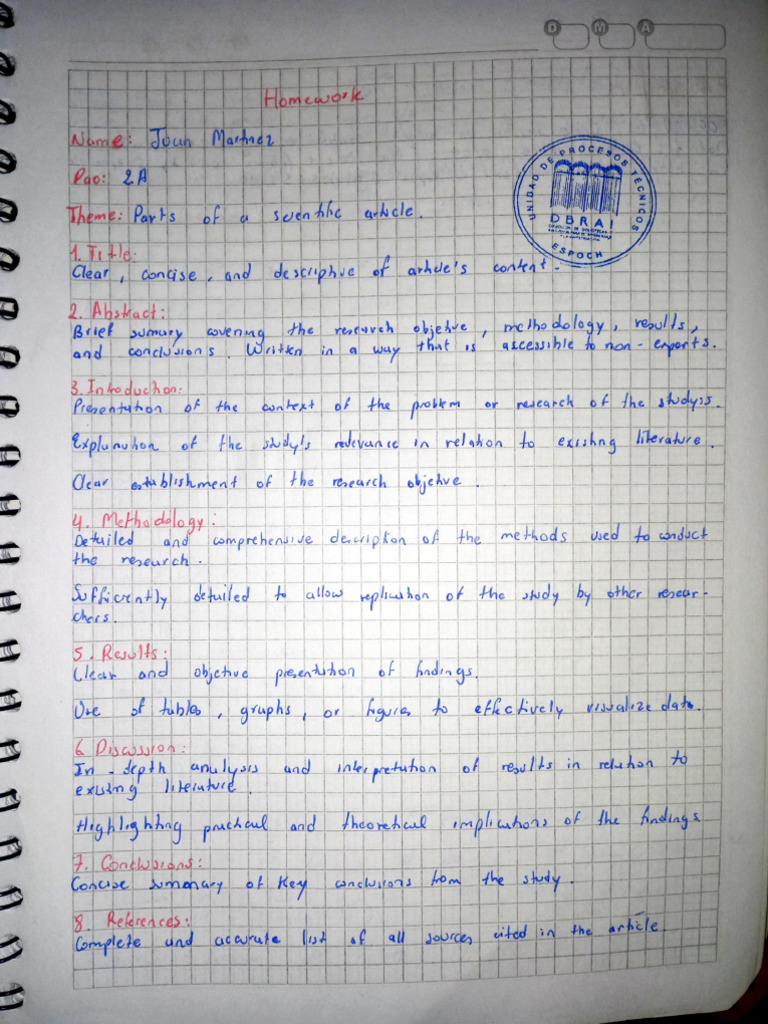 D M A
Homework
Name: Joan Martinez
Pao: 2A
Theme: Parts of a scientific article.
UNIDAD DE PROCESOS TÉCNICOS
DBRAI
ESPOCH
1. Title:
Clear, concise, and descriptive of article's content.
2. Abstract:
Brief sumary covering the research objetive, methodology, results,
and conclusions. Written in a way that is accessible to non-experts.
3. Introduction:
Presentation of the context of the problem or research of the studyis.
Explanation of the study's relevance in relation to existing literature.
Clear establishment of the research objetive.
4. Methodology:
Detailed and comprehensive description of the methods used to conduct
the research.
Sufficiently detailed to allow replication of the study by other resear-
chers.
5. Results:
Clear and objetive presentation of findings.
Use of tables, graphs, or figures to effectively visualize data.
6. Discussion:
In-depth analysis and interpretation of results in relation to
existing literature.
Highlighting practical and theoretical implications of the findings
7. Conclusions:
Concise summary of key conclusions from the study.
8. References:
Complete and accurate list of all sources cited in the article.